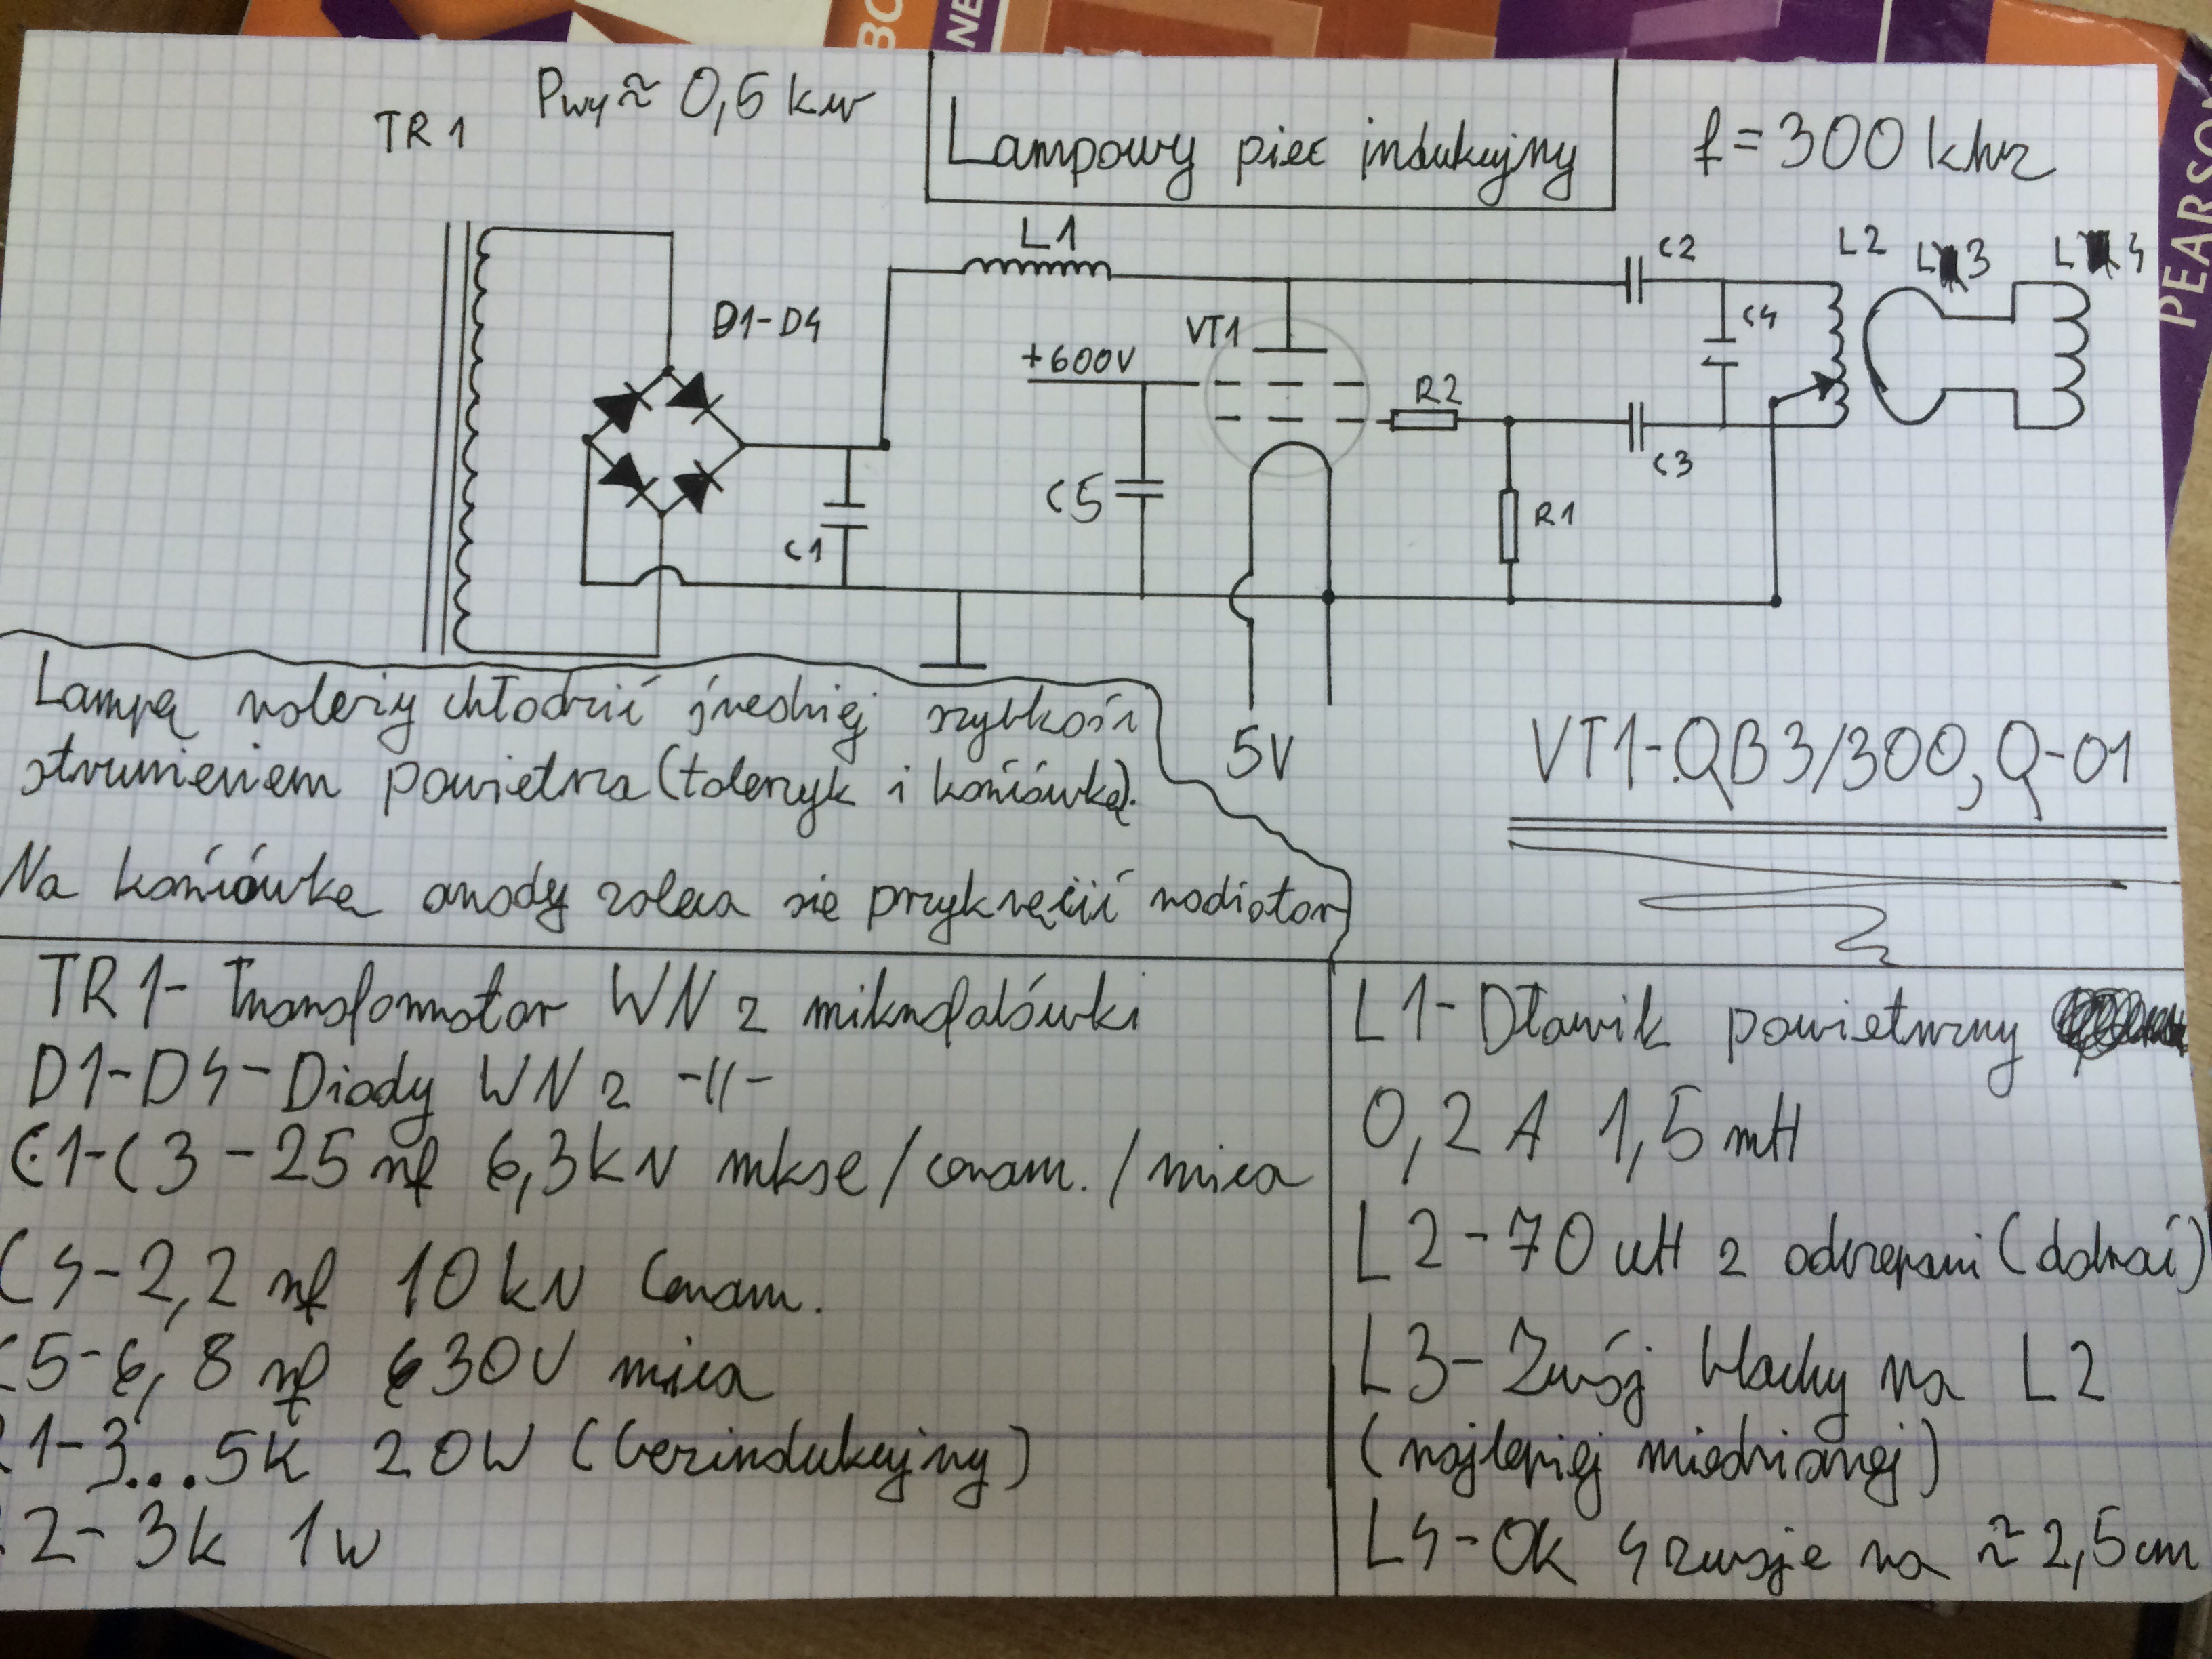 BO
NE
PEARSON
TR1
Pwy≈ 0,5 kw
Lampowy piec indukujny
f=300 khz
L1
C2
L2
L3
L4
D1-D4
VT1
C4
+600V
R2
C3
C5
R1
C1
5V
Lampą należy chłodzić średniej szybkości
strumieniem powietrza (talerzyk i końcówkę).
Na końcówkę anody zaleca się przykręcić radiator
VT1-QB3/300, Q-01
TR1- Transformator WN z mikrofalówki
D1-D4-Diody WN z -//-
C1-C3-25 nf 6,3kV mkse/ceram./mica
C4-2,2 nf 10kV Ceram.
C5-6,8 nf 630V mica
R1-3...5k 20W (bezindukcyjny)
R2- 3k 1w
L1-Dławik powietrzny
0,2A 1,5mH
L2-70uH z odczepami (dobrać)
L3-Zwój blachy na L2
(najlepiej miedzianej)
L4-Ok 4 zwoje na ≈2,5cm